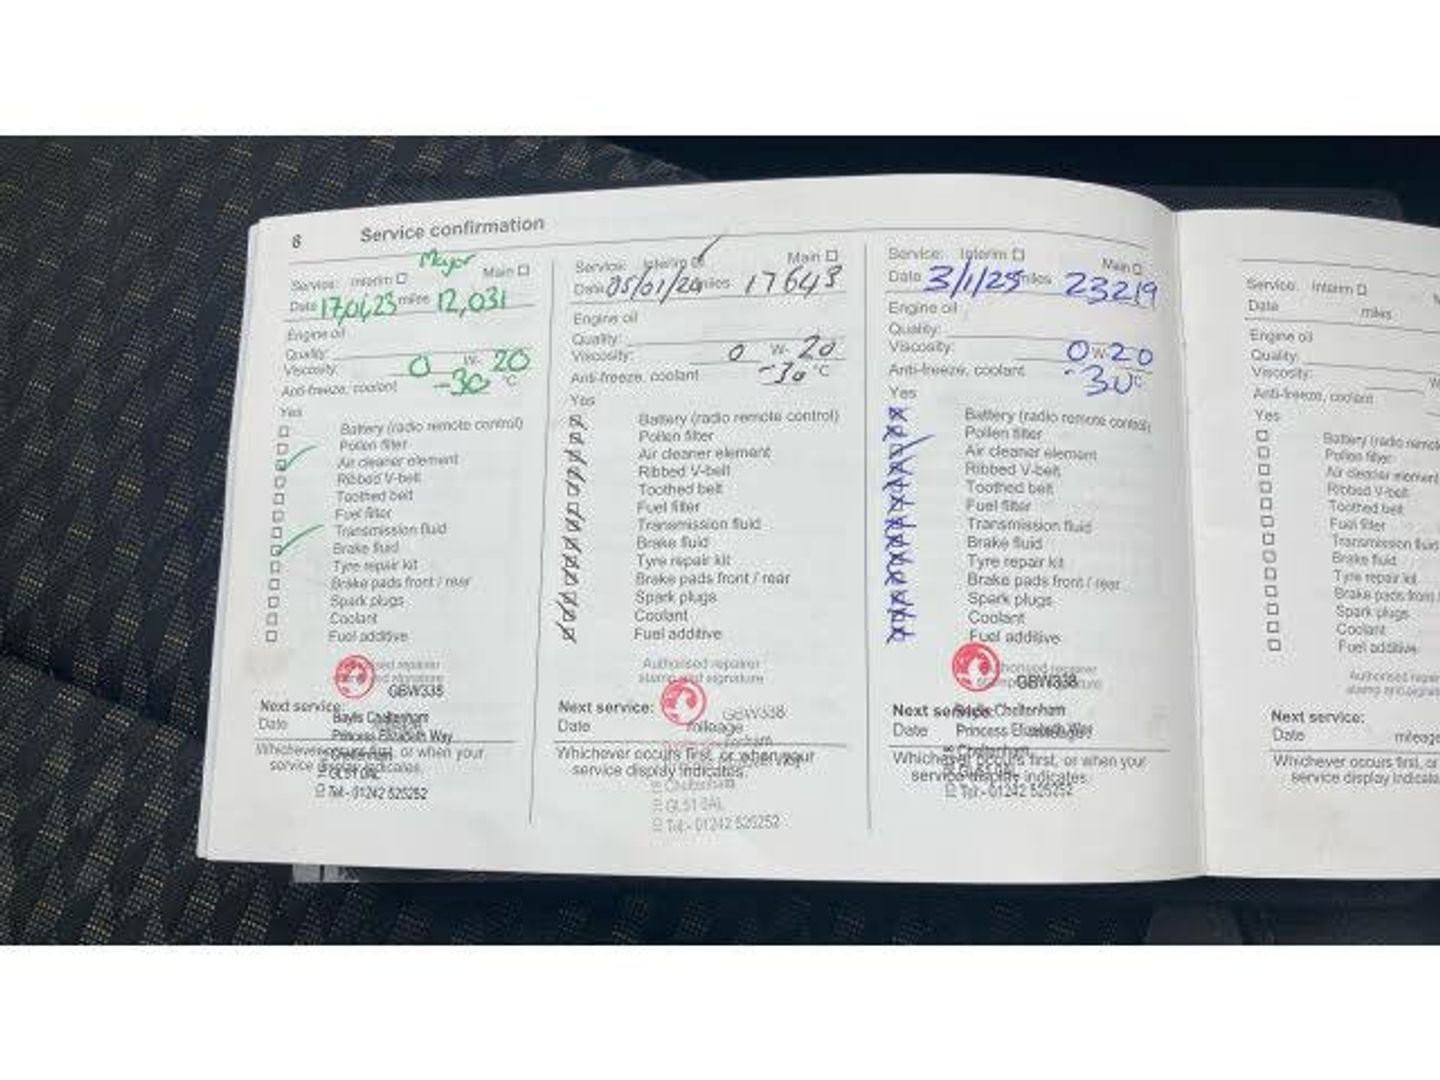 6 Service confirmation
Service: Interim Major Main
Date 17/01/23 miles 12,031
Engine oil
Quality:
Viscosity: 0 W- 20
Anti-freeze, coolant -30 °C
Yes
Battery (radio remote control)
Pollen filter
Air cleaner element
Ribbed V-belt
Toothed belt
Fuel filter
Transmission fluid
Brake fluid
Tyre repair kit
Brake pads front / rear
Spark plugs
Coolant
Fuel additive
GBW338
Next service:
Date
Baylis Cheltenham
Princess Elizabeth Way
Cheltenham
Whichever occurs first, or when your
service display indicates.
GL51 0AL
Tel:- 01242 525252
Service: Interim Main
Date 05/01/24 miles 17643
Engine oil
Quality:
Viscosity: 0 W- 20
Anti-freeze, coolant -30 °C
Yes
Battery (radio remote control)
Pollen filter
Air cleaner element
Ribbed V-belt
Toothed belt
Fuel filter
Transmission fluid
Brake fluid
Tyre repair kit
Brake pads front / rear
Spark plugs
Coolant
Fuel additive
Authorised repairer
stamp and signature
GBW338
Next service:
Date mileage
Whichever occurs first, or when your
service display indicates.
Cheltenham
GL51 0AL
Tel:- 01242 525252
Service: Interim Main
Date 3/1/25 miles 23219
Engine oil
Quality:
Viscosity: 0 W- 20
Anti-freeze, coolant -30°C
Yes
Battery (radio remote control)
Pollen filter
Air cleaner element
Ribbed V-belt
Toothed belt
Fuel filter
Transmission fluid
Brake fluid
Tyre repair kit
Brake pads front / rear
Spark plugs
Coolant
Fuel additive
GBW338
Next service: Cheltenham
Date Princess Elizabeth Way
Cheltenham
Whichever occurs first, or when your
service display indicates.
Tel:- 01242 525252
Service: Interim
Date miles
Engine oil
Quality:
Viscosity:
Anti-freeze, coolant
Yes
Battery (radio remote
Pollen filter
Air cleaner element
Ribbed V-belt
Toothed belt
Fuel filter
Transmission fluid
Brake fluid
Tyre repair kit
Brake pads front /
Spark plugs
Coolant
Fuel additive
Next service:
Date mileage
Whichever occurs first, or
service display indicate